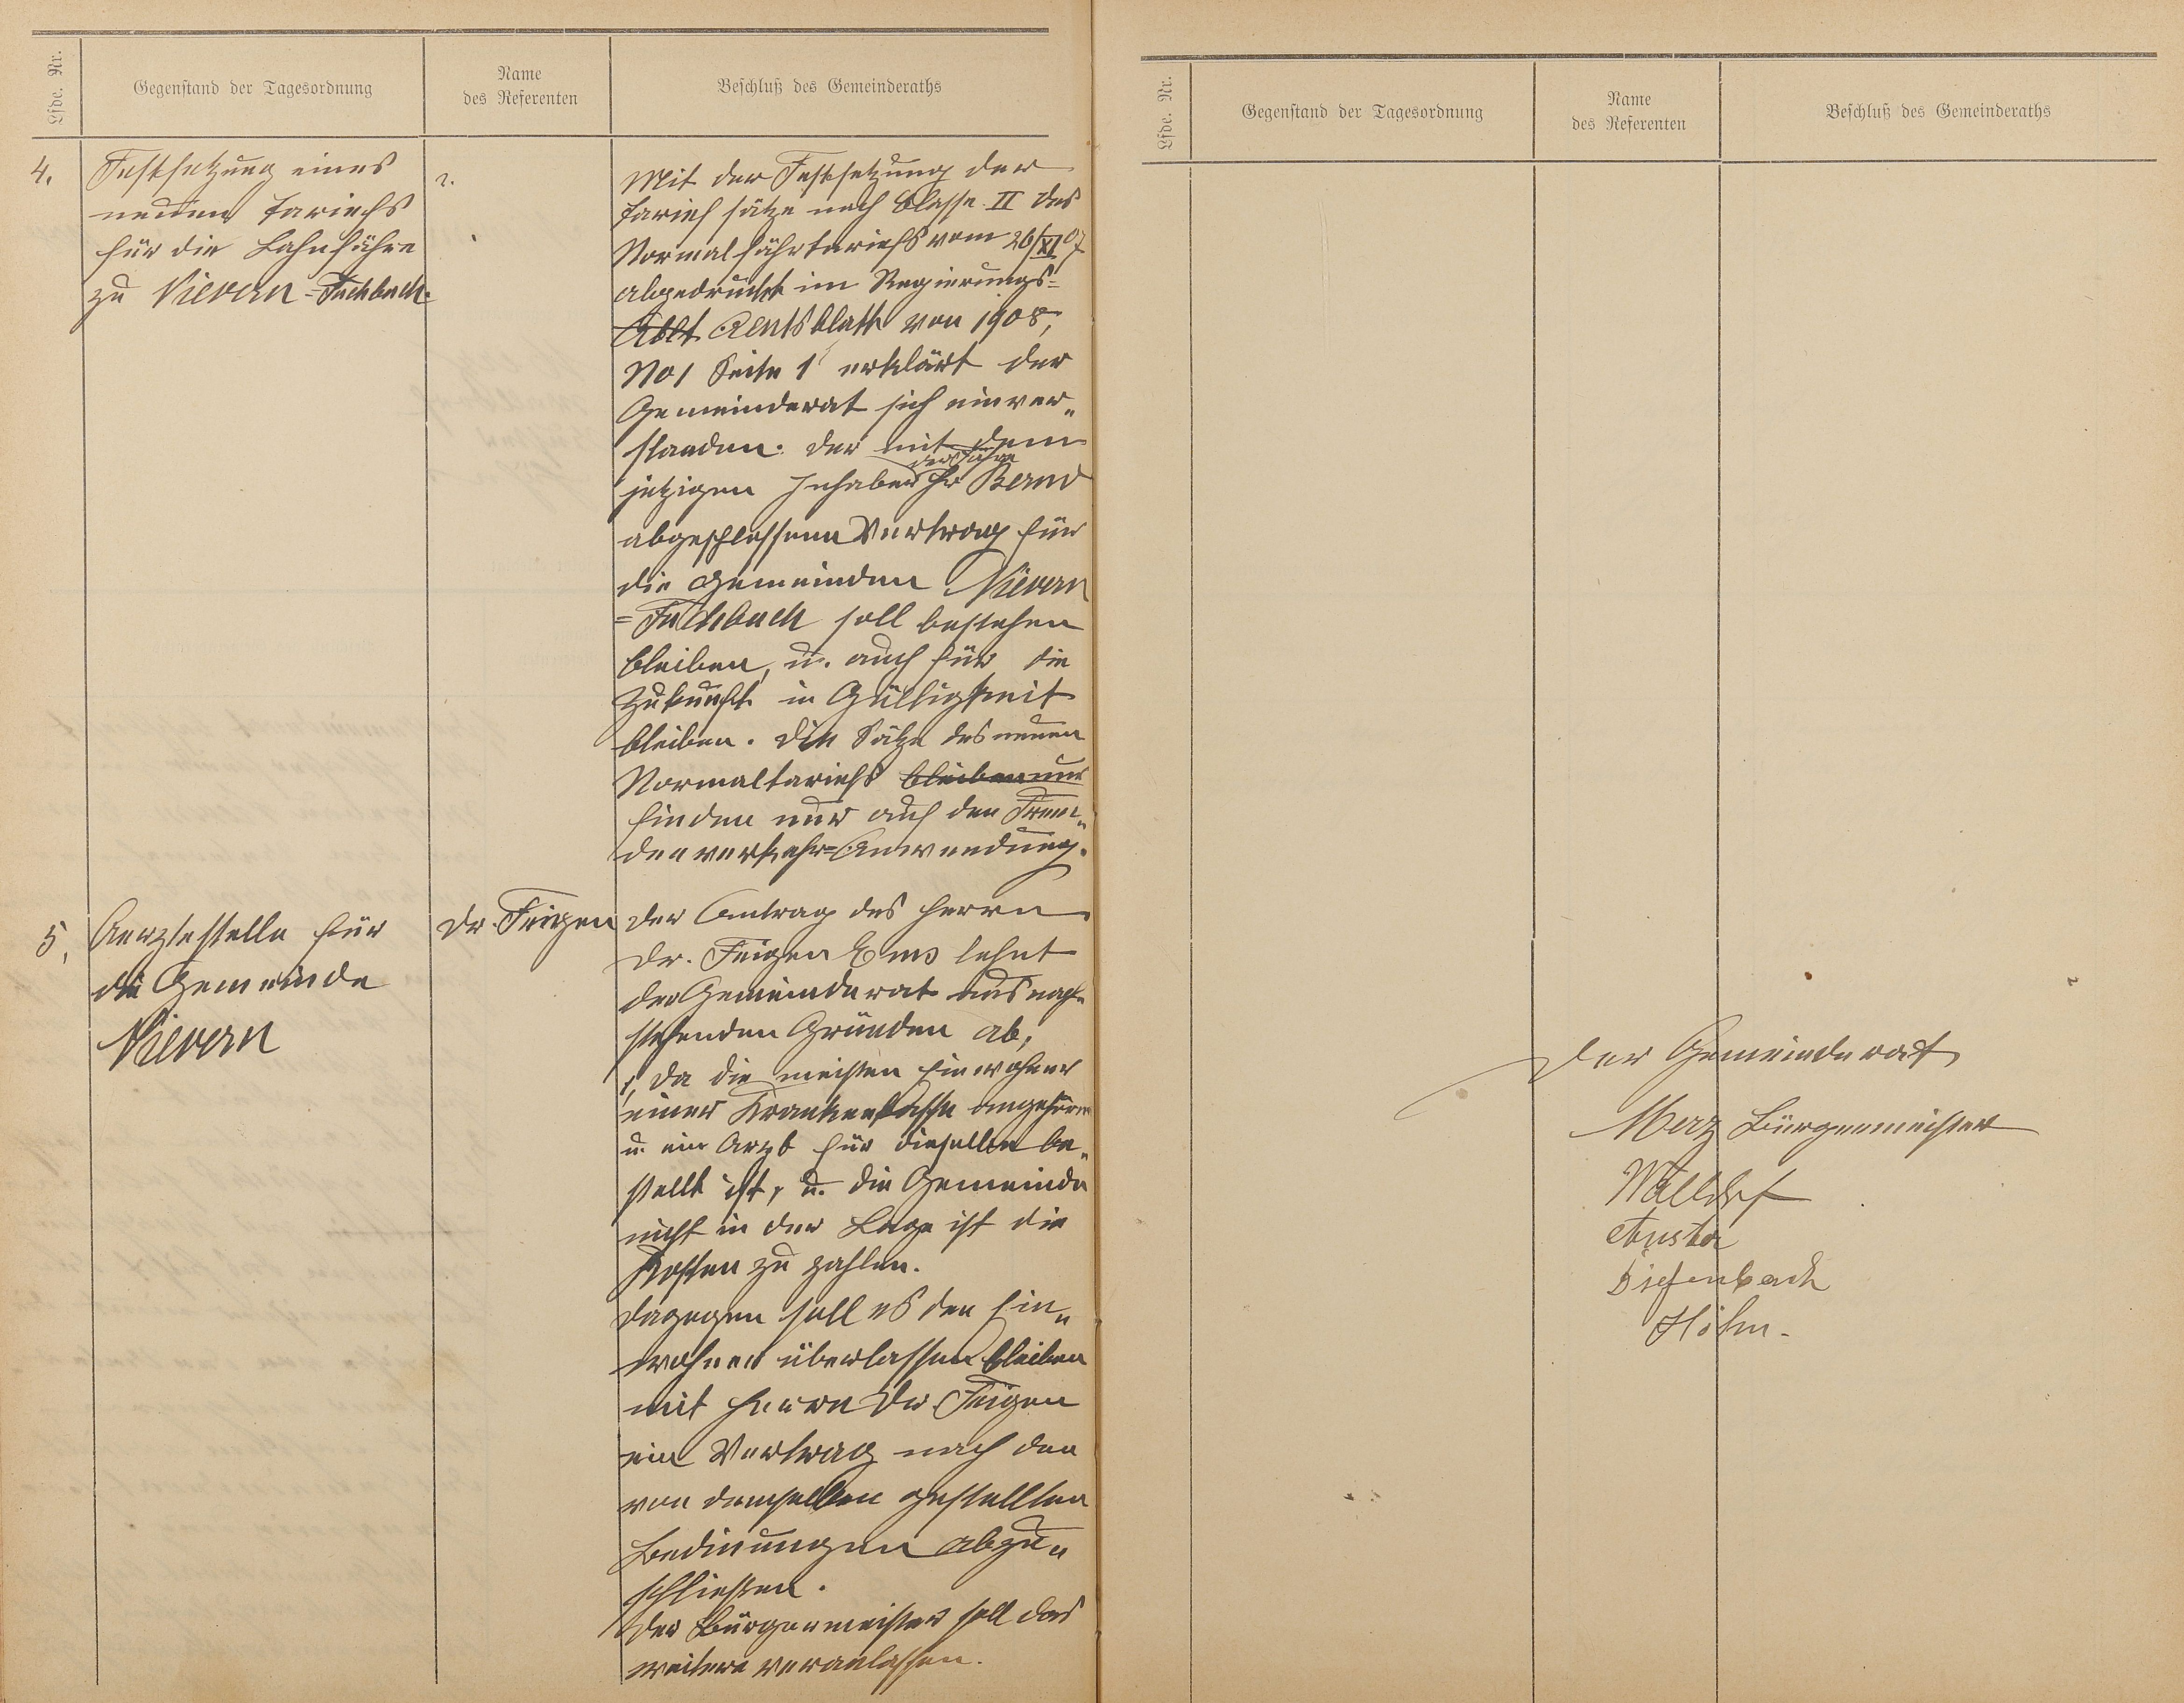 Lfde. Nr.
Gegenstand der Tagesordnung
Name
des Referenten
Beschluß des Gemeinderaths
4.
Festsetzung eines
neuen Tariefs
für die Lahnfähre
zu Nievern=Fachbach.
Mit der Festsetzung der
Tarief sätze nach Classe II des
Normalfährtariefs vom 26/XI 07
abgedruckt im Regierungs=
Amtsblatt von 1908,
No 1 Seite 1 erklärt der
Gemeinderat sich einver„
standen. Der mit dem
der Fähre
jetzigen Inhaber Hr Bernd
abgeschlossene Vertrag für
die Gemeinden Nievern
=Fachbach soll bestehen
bleiben, u. auch für die
Zukunft in Gültigkeit
bleiben. Die Sätze des neuen
Normaltariefs bleiben nur
finden nur auf den Frem„
denverkehr=Anwendung.
5,
Aerztestelle für
die Gemeinde
Nievern
Dr. Feigen
Der Antrag des Herrn
Dr. Feigen Ems lehnt
der Gemeinderat aus nach„
stehenden Gründen ab,
1, Da die meisten Einwohner
einer Krankenkasse angehören
u. ein Arzt für dieselben be„
stellt ist, u. die Gemeinde
nicht in der Lage ist die
Kosten zu zahlen.
Dagegen soll es den Ein„
wohner überlassen bleiben
mit Herrn Dr Feigen
ein Vertrag nach den
von demselben gestellten
Bedinungen abzu„
schließen.
Der Bürgermeister soll das
weitere veranlassen.
Lfde. Nr.
Gegenstand der Tagesordnung
Name
des Referenten
Beschluß des Gemeinderaths
Der Gemeinderat
Merz Bürgermeister
Walldorf
Diefenbach
Höhn.